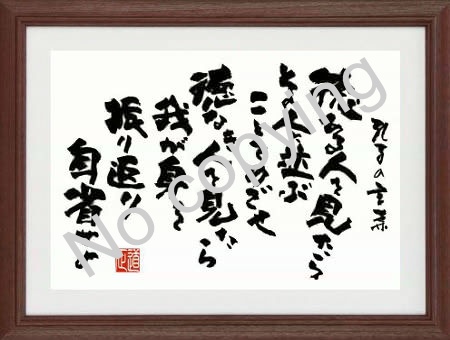 孔子の言葉
徳ある人を見たら
その人と並ぶ
ことをめざせ
徳なき人を見たら
我が身を
振り返り
自省せよ
No copying